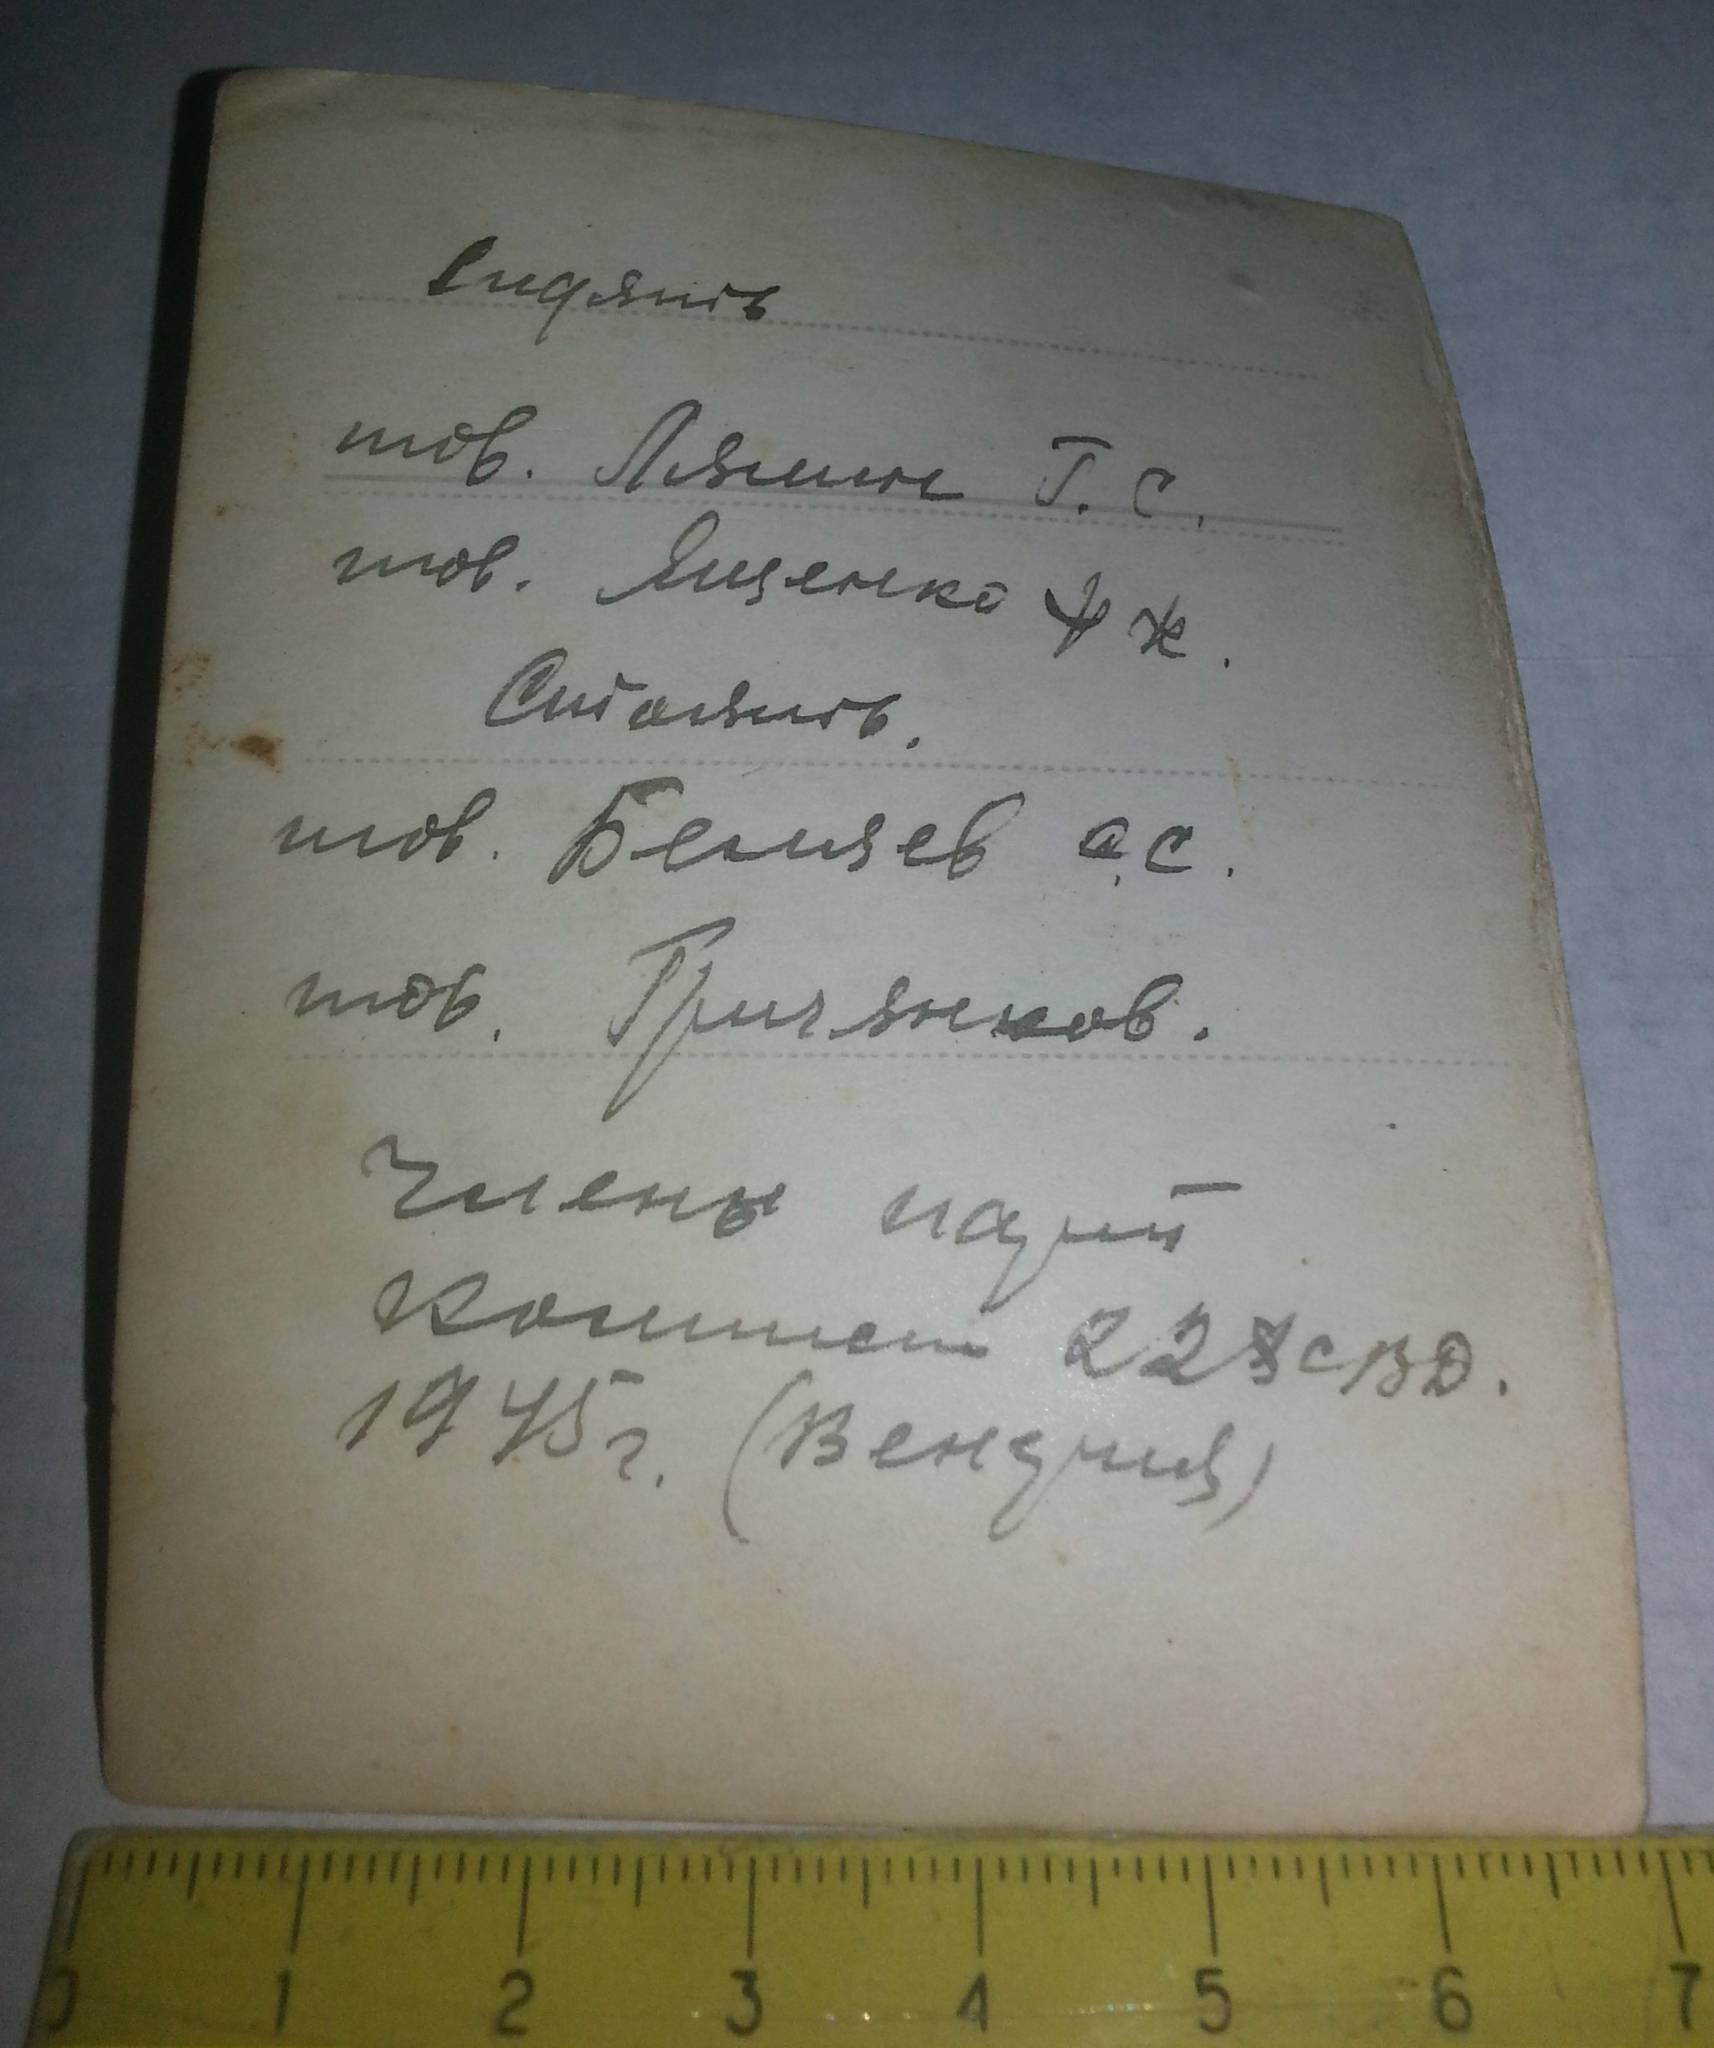 Сидять
тов. Лямин Г. С.
тов. Ященко Ф К.
Стоять.
тов. Беляев А. С.
тов. Гричянков.
Члены парт
Комитет ВД.
1945 г. (Венгрия)
0 1 2 3 4 5 6 7